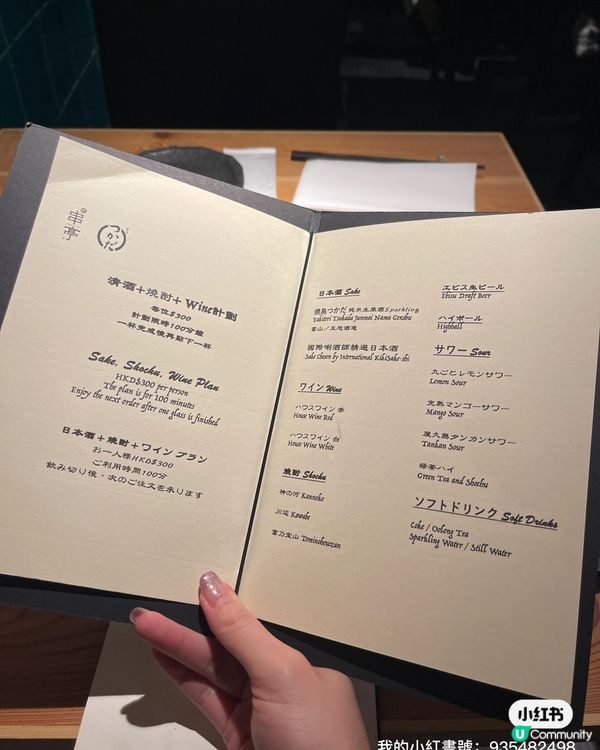 串亭
つかだ
清酒+焼酎+ Wine計劃
每位$300
計劃限時100分鐘
一杯完成後再勵下一杯
Sake, Shochu, Wine Plan
HKD$300 per person
The plan is for 100 minutes
Enjoy the next order after one glass is finished
日本酒+焼酎+ワイン プラン
お一人様HKD$300
ご利用時間100分
飲み切り後、次のご注文を承ります
日本酒 Sake
焼鳥つかだ 純米生原酒Sparkling
Yakitori Tsukada Junmai Nama Genshu
富山/玉旭酒造
國際唎酒師精選日本酒
Sake chosen by International KikiSake-shi
ワイン Wine
ハウスワイン 赤
House Wine Red
ハウスワイン 白
House Wine White
焼酎 Shochu
神の河 Kannoko
川辺 Kawabe
富乃宝山 Tominohouzan
エビス生ビール
Ebisu Draft Beer
ハイボール
Highball
サワー Sour
丸ごとレモンサワー
Lemon Sour
完熟マンゴーサワー
Mango Sour
屋久島タンカンサワー
Tankan Sour
緑茶ハイ
Green Tea and Shochu
ソフトドリンク Soft Drinks
Coke / Oolong Tea
Sparkling Water / Still Water
小红书
U Community
我的小紅書號：935482498